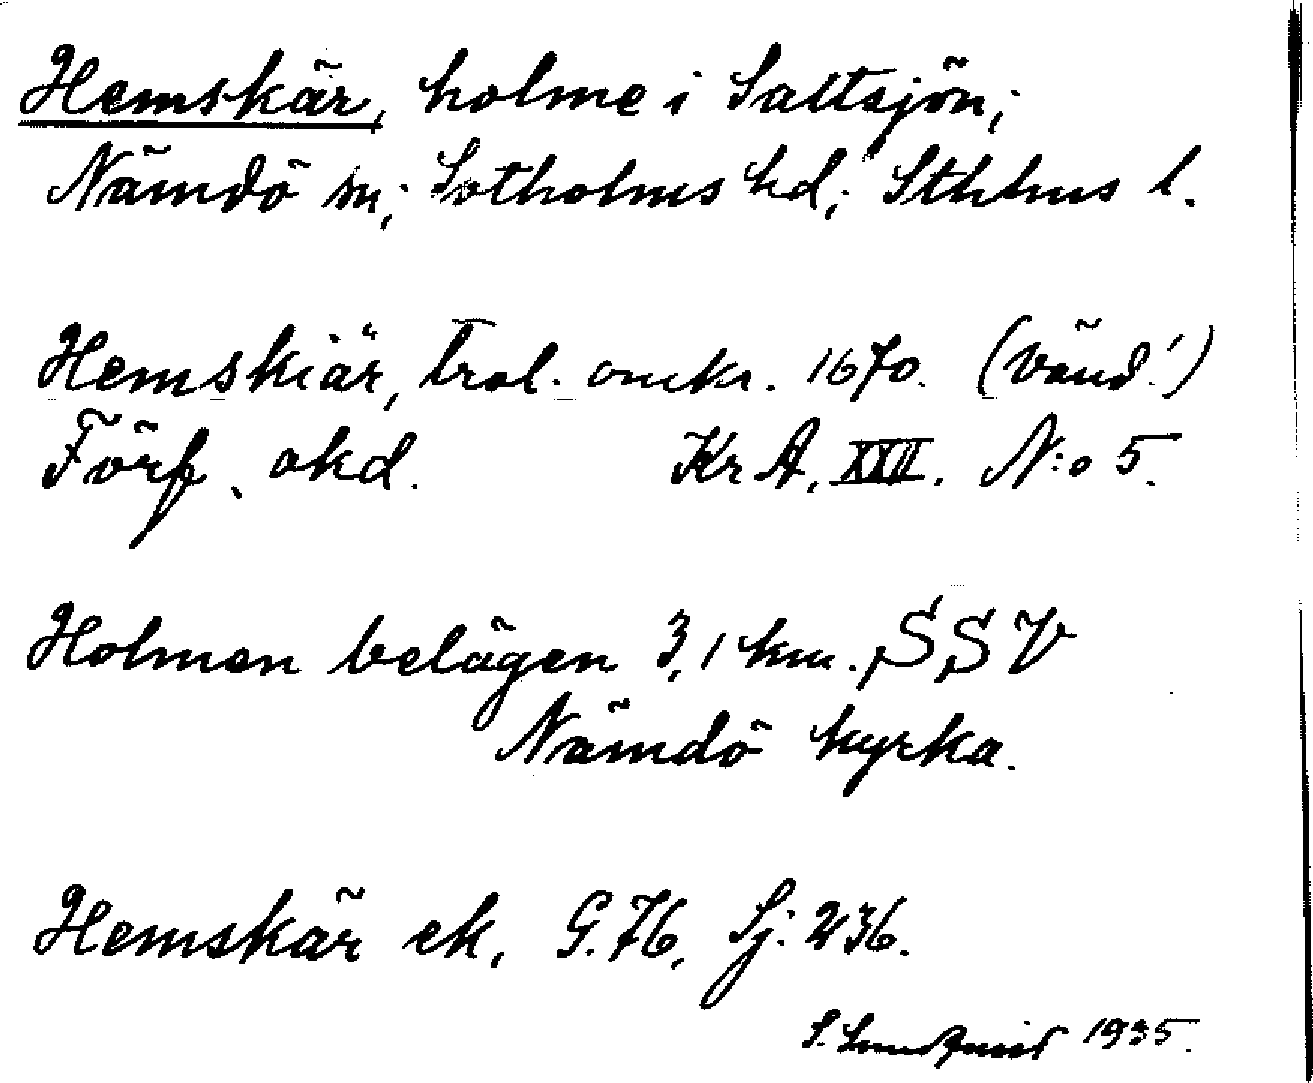 Hemskär, holme i Saltsjön;
Nämdö sn; Sotholms hd; Sthlms l.
Hemskiär, trol. omkr. 1670. (Vänd!)
Förf. okd. Kr A, XXII. N:o 5.
Holmen belägen 3,1 km. SSV
Nämdö kyrka.
Hemskär ek, G. 76, Sj. 236.
S. Lundquist 1935.